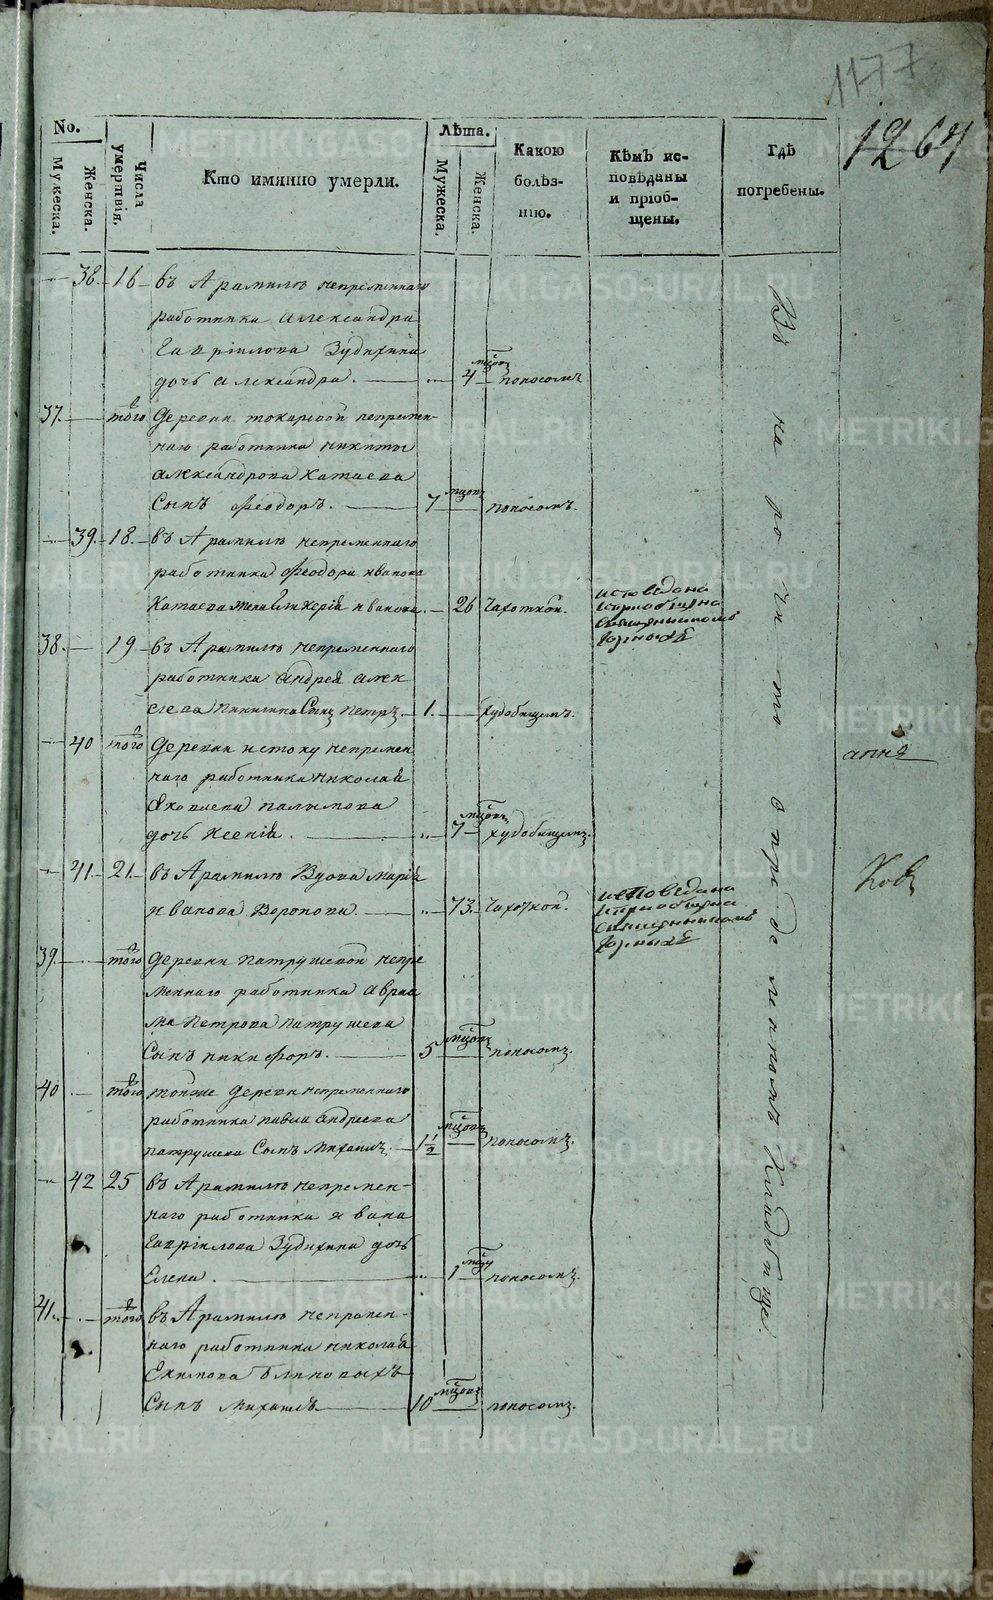 1177
1267
No.
Мужеска.
Женска.
Числа умертвія.
Кто имянно умерли.
Лѣта.
Мужеска.
Женска.
Какою болѣз-
нію.
Кѣмъ ис-
повѣданы
и пріоб-
щены.
Гдѣ
погребены.
38. 16 въ Арамилѣ непременнаго
работника Александра
Гавріилова Зудихина
дочь Александра. 4 мцовъ поносомъ
37. того деревни токаревой непремен-
наго работника никиты
александрова Катаева
Сынъ Феодоръ. 7 мцовъ поносомъ.
39. 18. въ Арамилѣ непременнаго
работника Феодора иванова
Катаева жена Гликерія иванова. 26 Чахоткой. исповедана
и приобщена
священникомъ
38. 19 въ Арамилѣ непременнаго
работника Андрея алек
сеева Сынъ петръ. 1. худобищемъ.
40 того деревни истоку непремен
наго работника николая
Яковлева палымова
дочь Ксенія. 7 мцовъ худобищемъ.
41. 21. въ Арамилѣ Вдова марія
иванова Воронова. 73. Чахоткой. исповедана
и приобщена
священникомъ
39. того деревни патрушевой непре
меннаго работника авраа
ма петрова патрушева
Сынъ никифоръ. 5 мцовъ поносомъ.
40 того тойже деревни непременнаго
работника павла андреева
патрушева Сынъ михаилъ. 1½ мцовъ поносомъ.
42 25 въ Арамилѣ непремен-
наго работника ивана
Гавріилова Зудихина дочь
Елена. 1 мцу поносомъ.
41. того въ Арамилѣ непремен-
наго работника николая
Екимова Блиновыхъ
Сынъ михаилъ 10 мцовъ поносомъ.
На
кладбище.